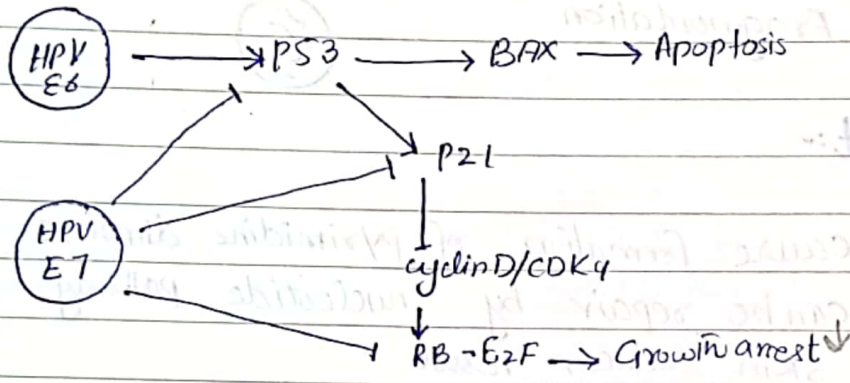 HPV E6 → P53 → BAX → Apoptosis
P21
HPV
E7
cyclinD/CDK4
RB-E2F → Growth arrest ↓